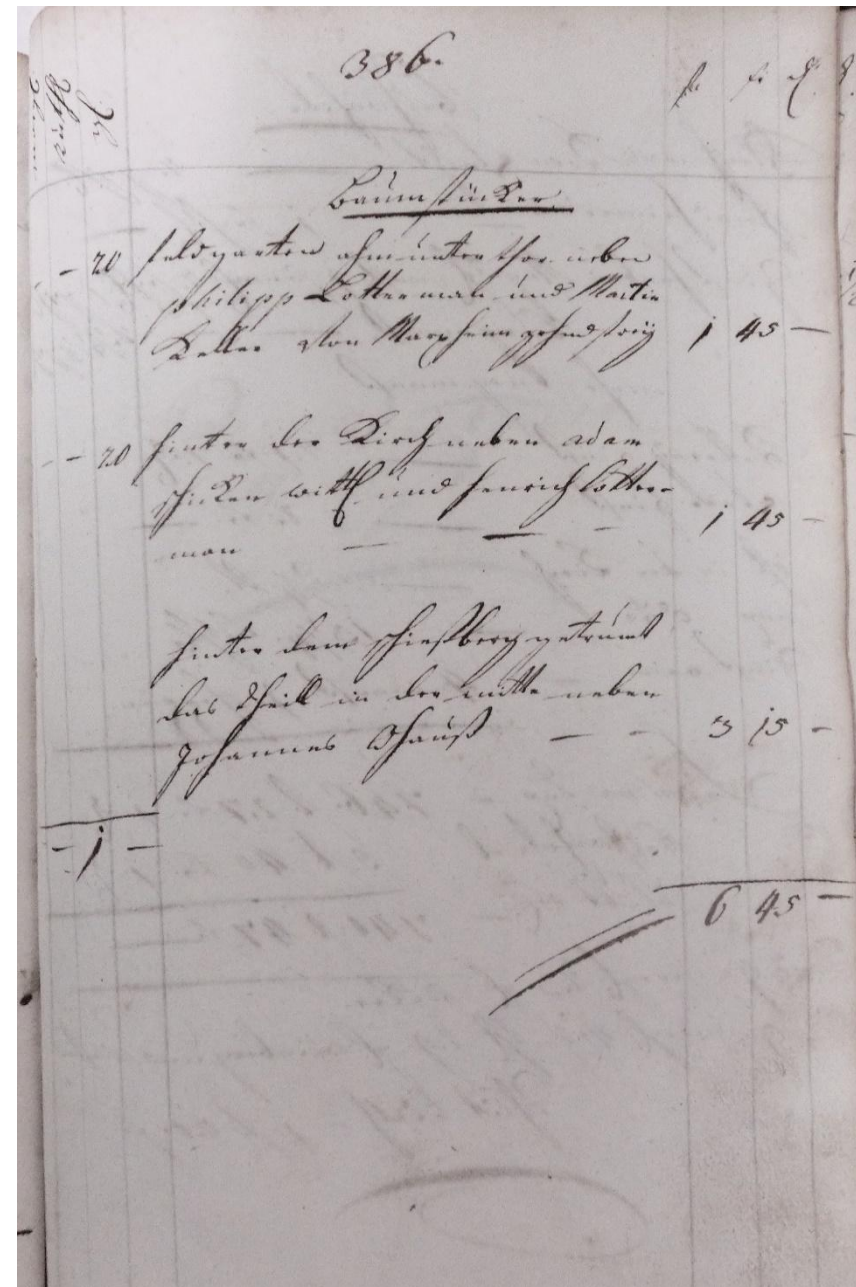 386.
Baumstücker
- 20 feldgarten ahm unter thor neben
philipp Lotterman und Martin
Keller Von Marxheim zehendfreÿ 1 45 —
- 20 hinter der Kirch neben adam
wittb und henrich Lotter-
man — — — 1 45 —
hinter dem schießberg
das theill in der mitte neben
Johannes — — 3 15 —
- 1 —
6 45 —